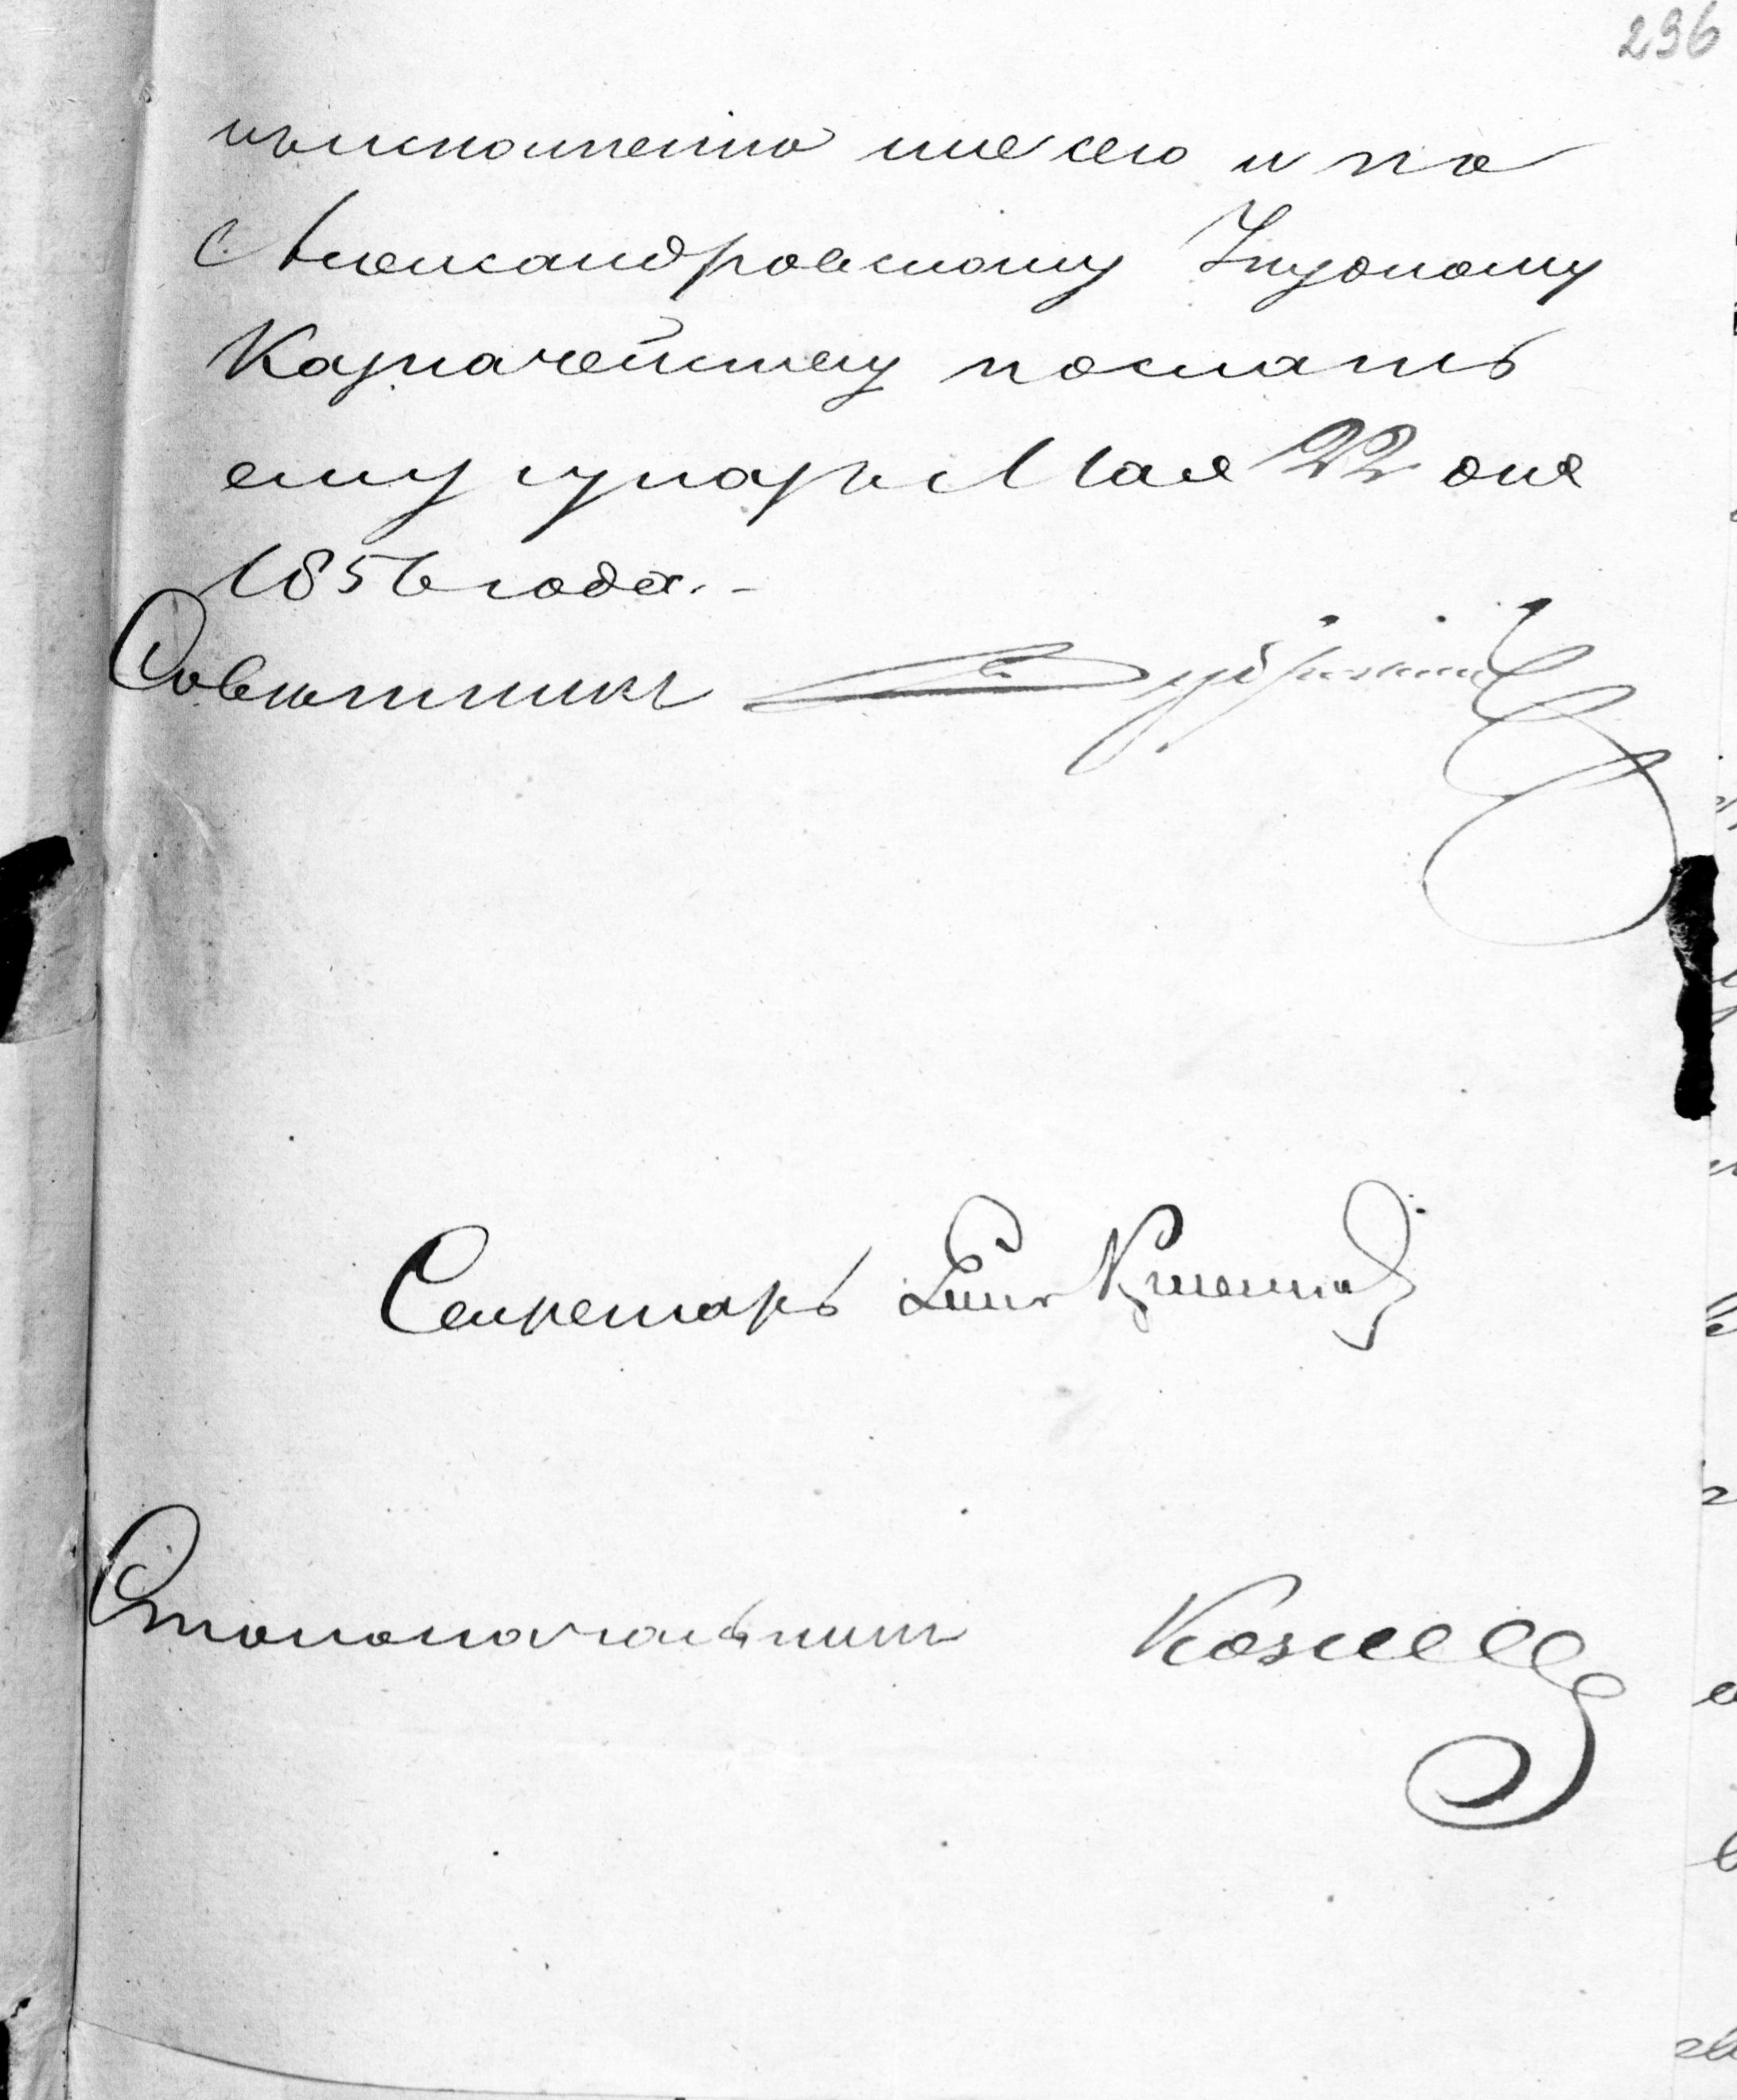 236
къ исполненію чего и по
Александровскому Уѣздному
Казначейству послать
ему указъ. Мая 22 дня
1856 года.
Совѣтникъ
Секретарь
Столоначальникъ